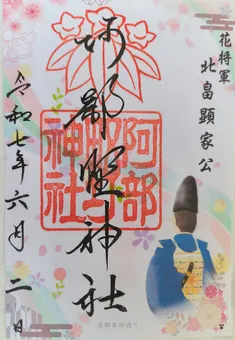 花将軍
北畠顕家公
阿部野神社
阿部野神社
令和七年六月二日